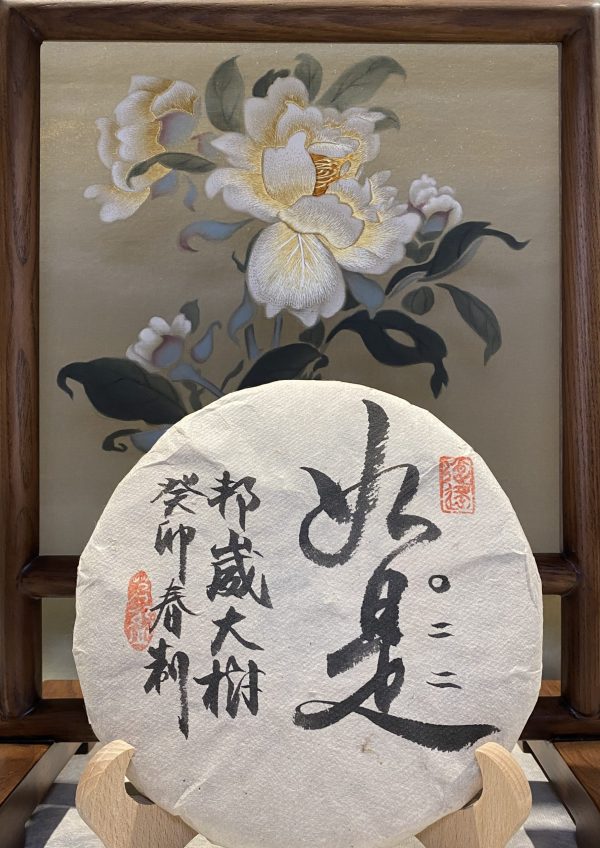 〇二二
如是
邦崴大樹
癸卯春制